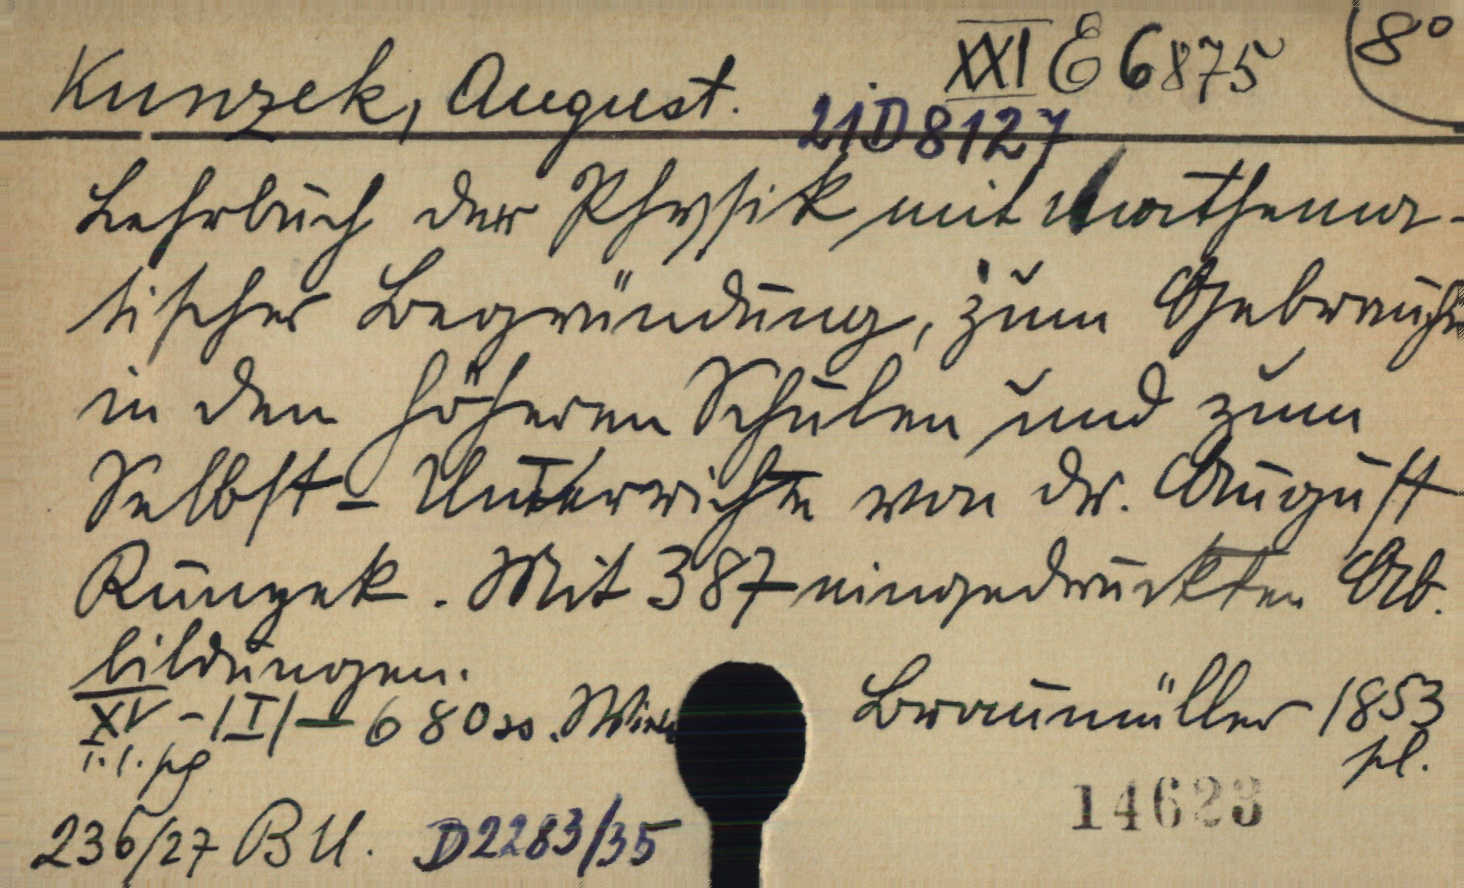 XXI E 6875
8°
Kunzek, August.
21 D 8127
Lehrbuch der Physik mit mathema-
tischer Begründung, zum Gebrauche
in den höheren Schulen und zum
Selbst-Unterrichte von Dr. August
Kunzek. Mit 387 eingedruckten Ab-
bildungen.
XV-|I|-680 ss. Wien Braumüller 1853
pl.
14623
236/27 BU. D2283/35